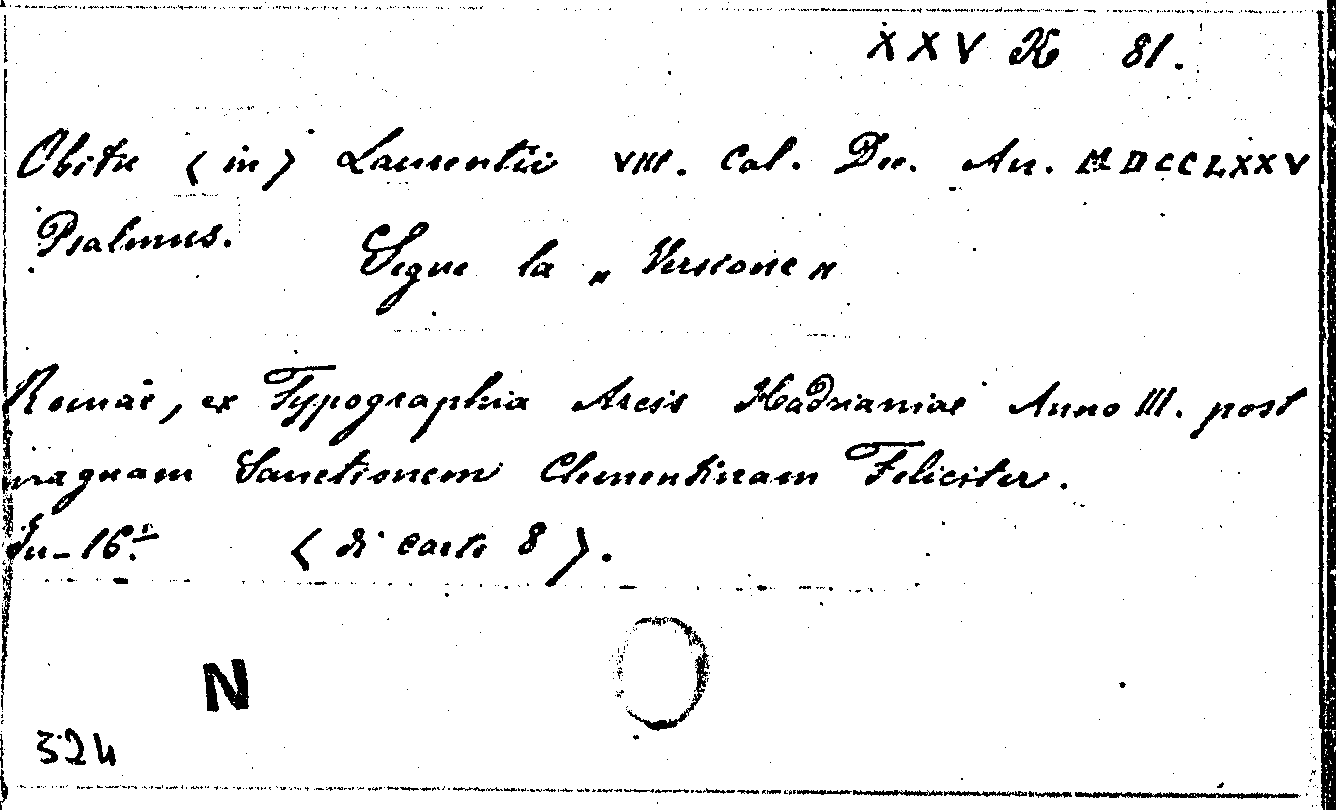 XXV K 81.
Obitu (in) Laurentii VIII. Cal. Dec. An. MDCCLXXV
Psalmus. Segue la „ Versione „
Romae, ex Typographia Arcis Hadrianiae Anno III. post
magnam Sanctionem Clementinam Feliciter.
In-16.° (di carte 8).
N
324